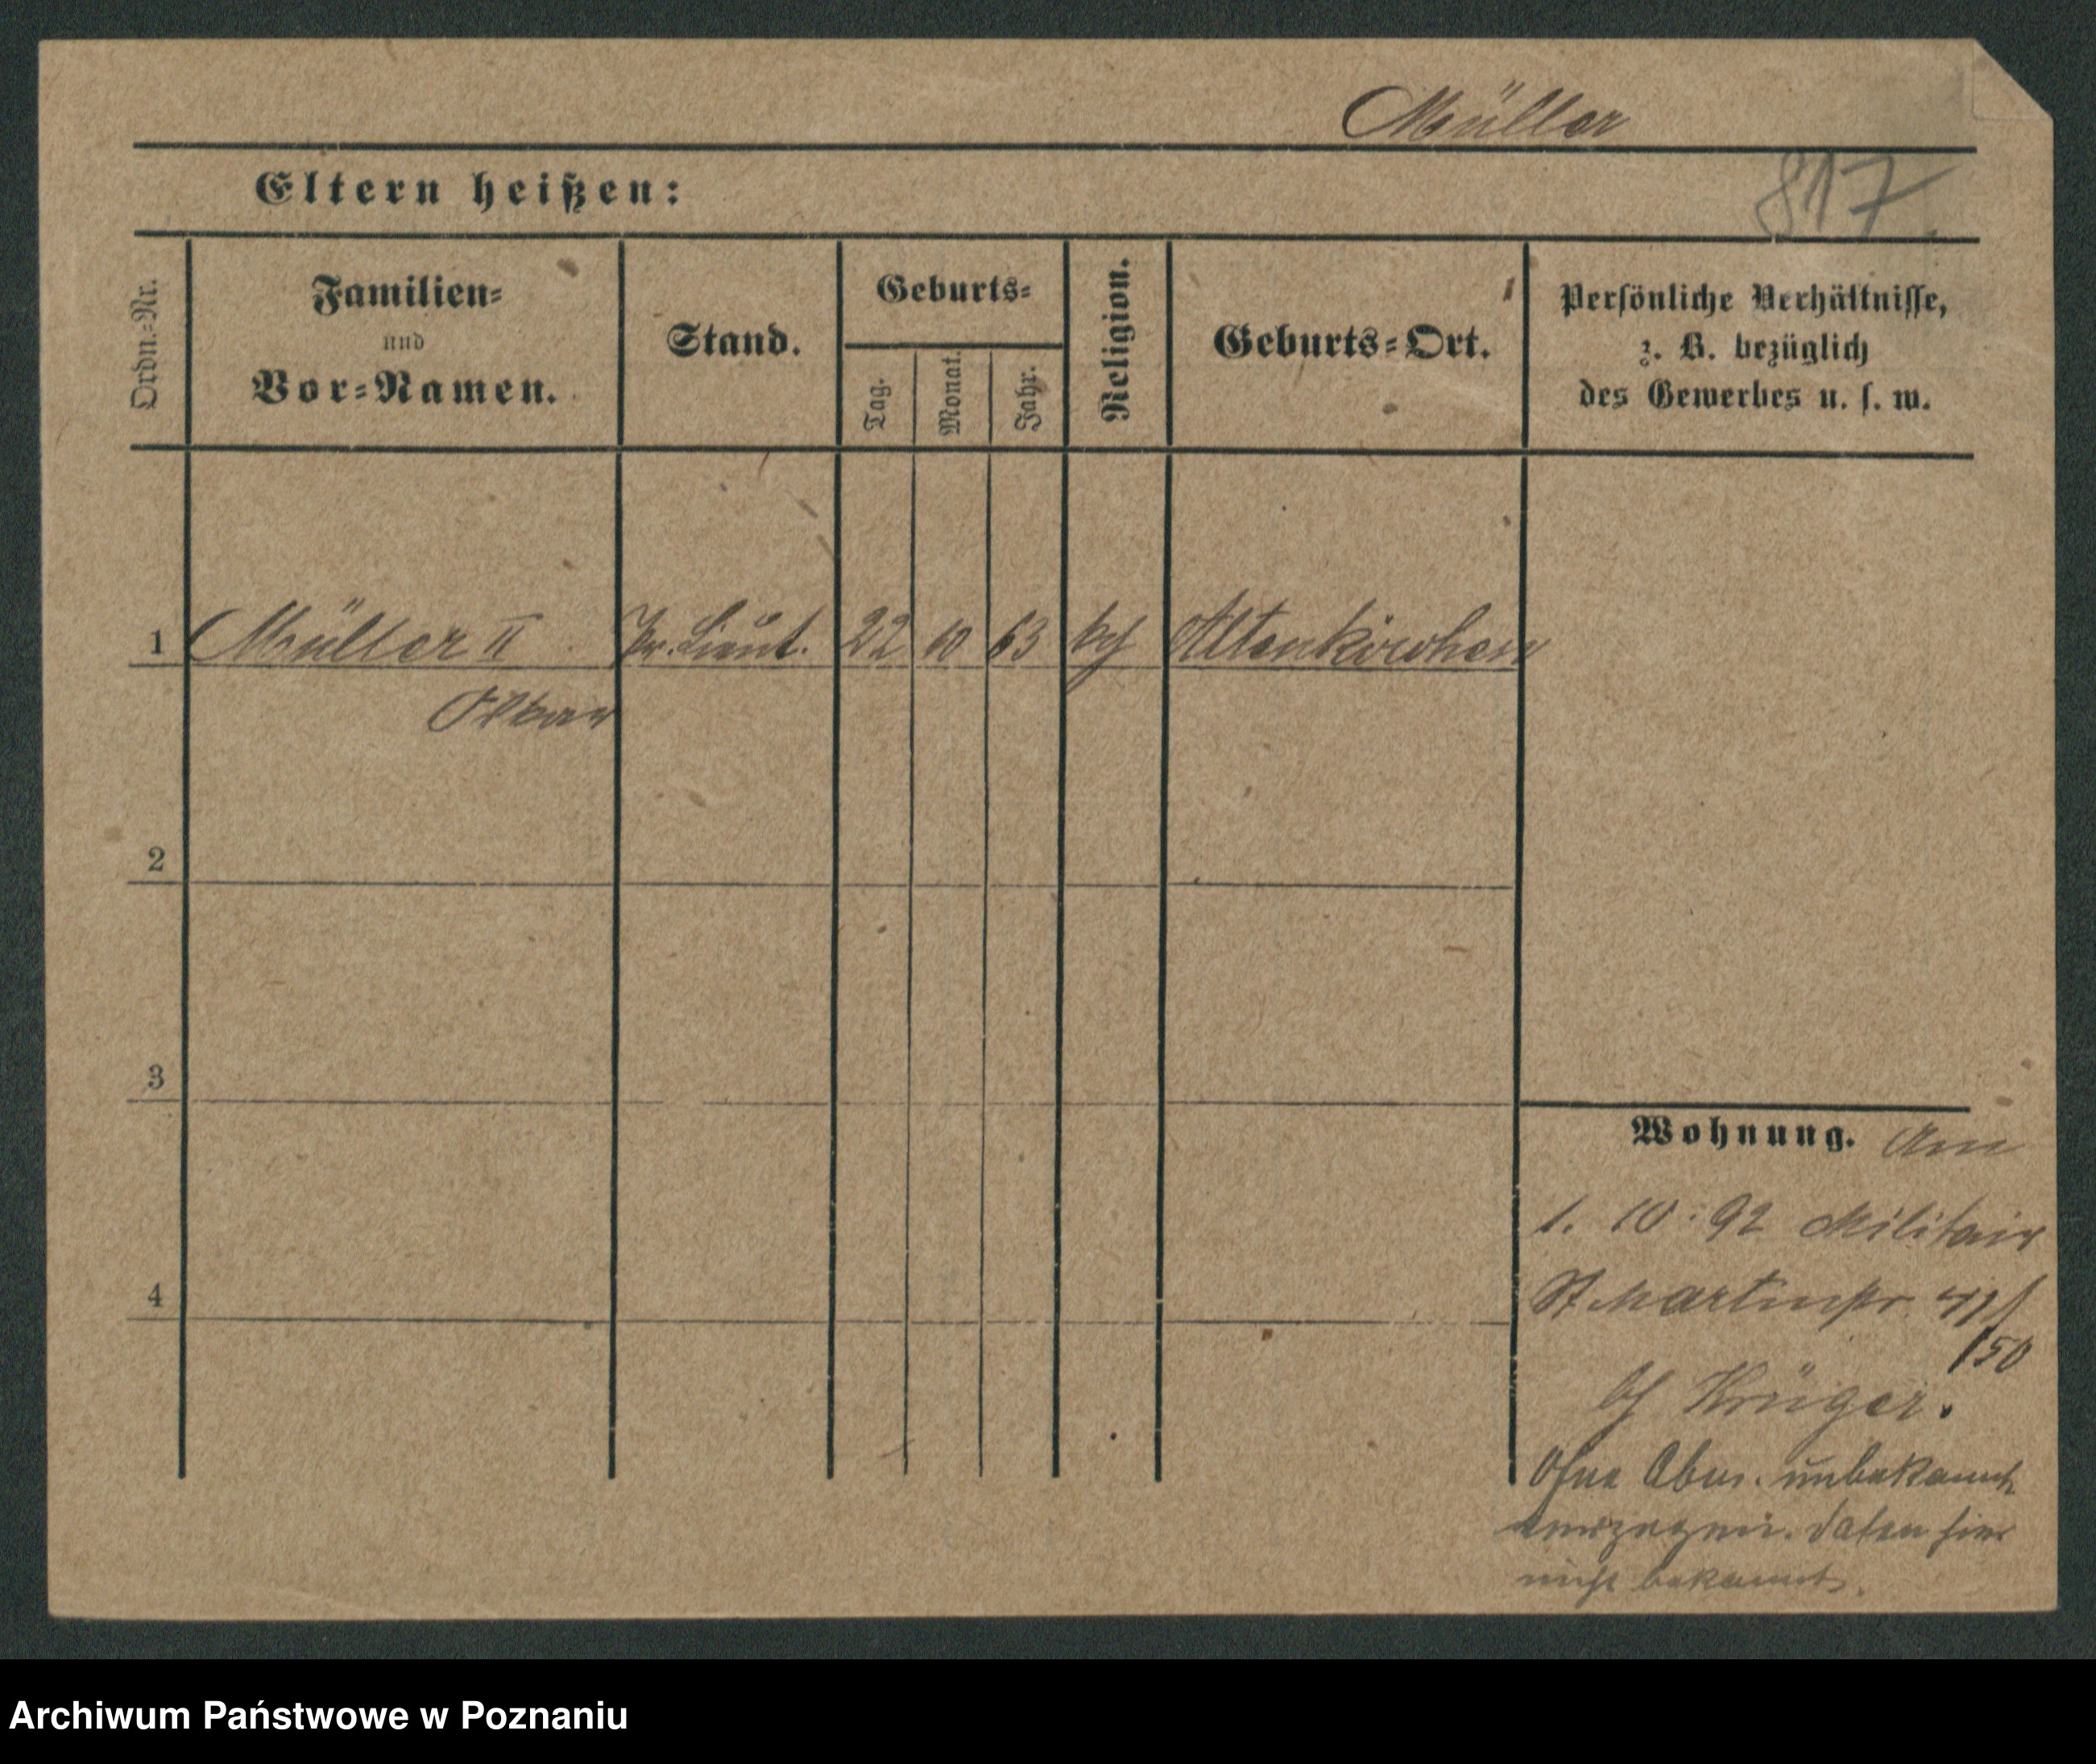 Müller
Eltern heißen:
817
Ordn.=Nr.
Familien=
und
Vor=Namen.
Stand.
Geburts=
Tag.
Monat.
Jahr.
Religion.
Geburts=Ort.
Persönliche Verhältnisse,
z. B. bezüglich
des Gewerbes u. s. w.
1 Müller II Pr. Lieut. 22 10 63 Altenkirchen
2
3
4
Wohnung. Am
1. 10. 92 Militair
St Martinstr.
150
bei Krüger.
Ohne Abm. unbekannt
verzogen. Daten hier
nicht bekannt.
Archiwum Państwowe w Poznaniu